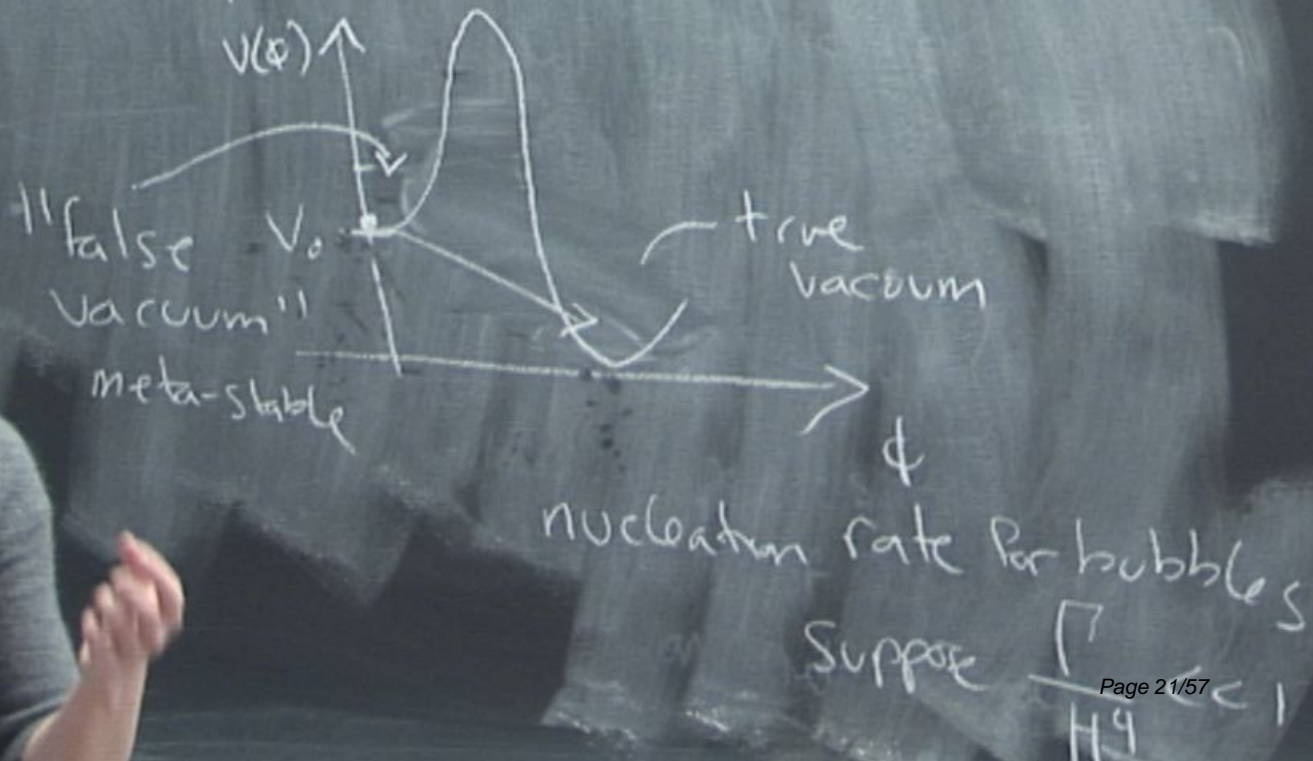 V(φ)
"false
vacuum"
meta-stable
V₀
true
vacuum
φ
nucleation rate for bubbles
Suppose Γ/H⁴ << 1
Page 21/57